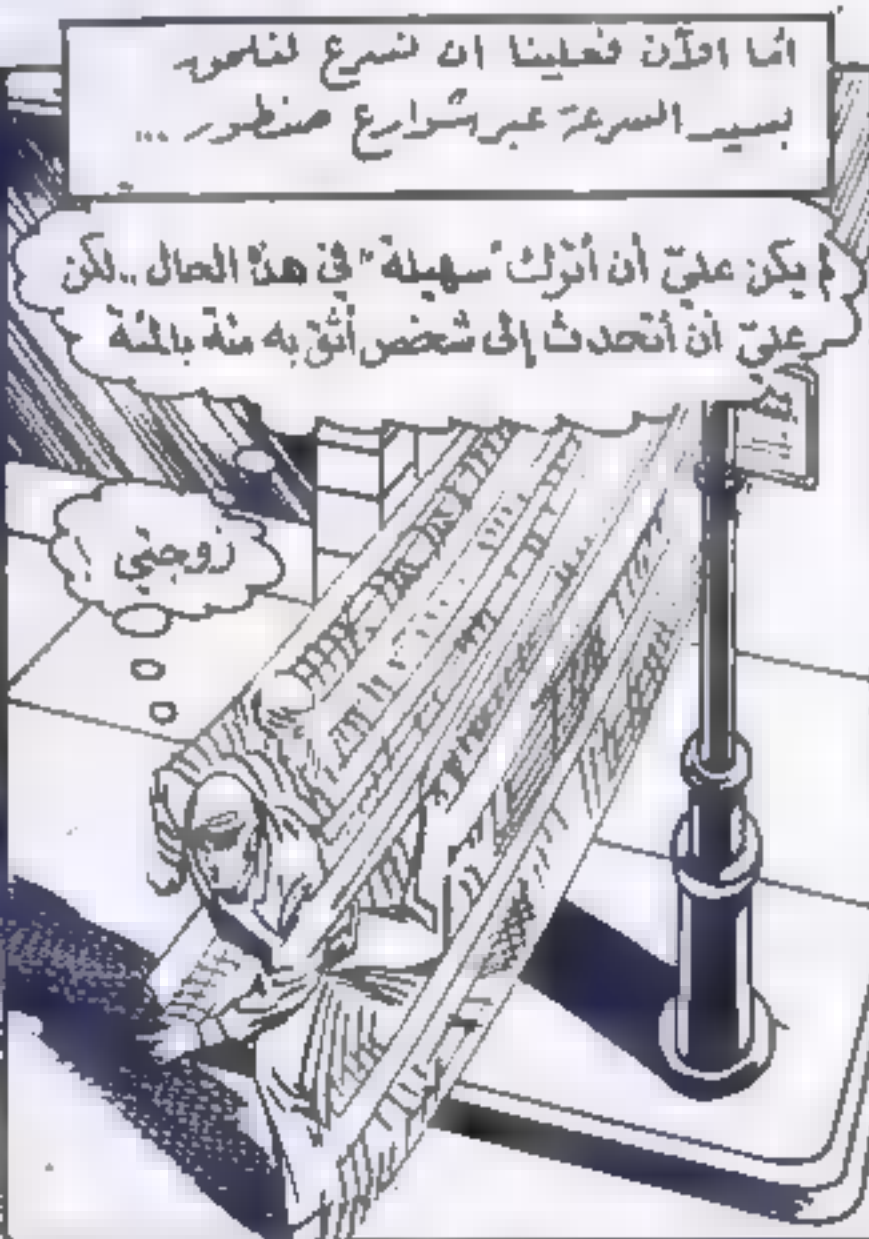 أما الآن فعلينا ان نسرع لنلحق
بسيد السرعة عبر شوارع صنطور ...
لم يكن عليّ أن أترك "سهيلة" في هذا الحال .. لكن
عليّ أن أتحدث إلى شخص أثق به مئة بالمئة
زوجتي